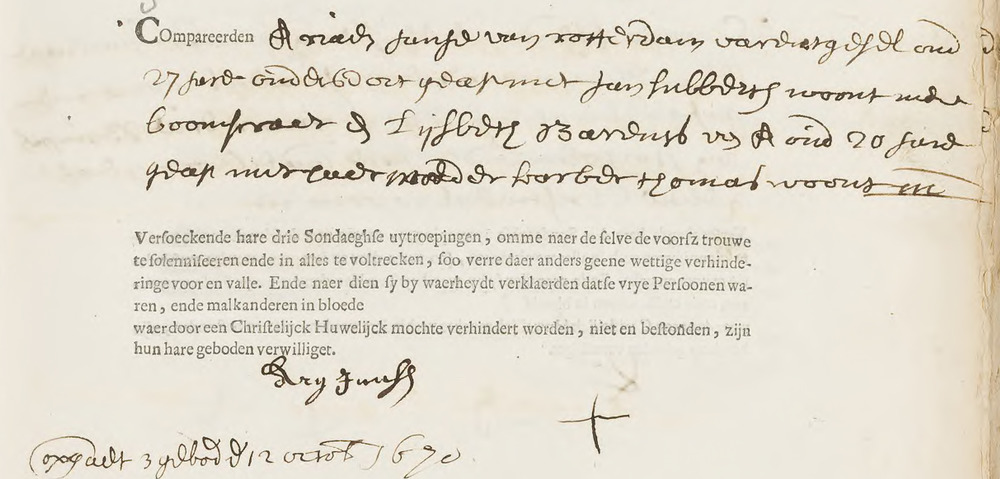 Compareerden Ariaen Janse van rotterdam varentgesel oud
27 Jare ouders doot geas met Jan hubberts woont inde
boomstraet en Lijsbeth Barents van A oud 20 Jare
geas met haer moeder barber thomas woont in
Versoeckende hare drie Sondaeghse uytroepingen, omme naer de selve de voorsz trouwe
te solenniseeren ende in alles te voltrecken, soo verre daer anders geene wettige verhinde-
ringe voor en valle. Ende naer dien sy by waerheydt verklaerden datse vrye Persoonen wa-
ren, ende malkanderen in bloede
waer door een Christelijck Huwelijck mochte verhindert worden, niet en bestonden, zijn
hun hare geboden verwilliget.
Ary Jansz
3 gebod d 12 octob 1670